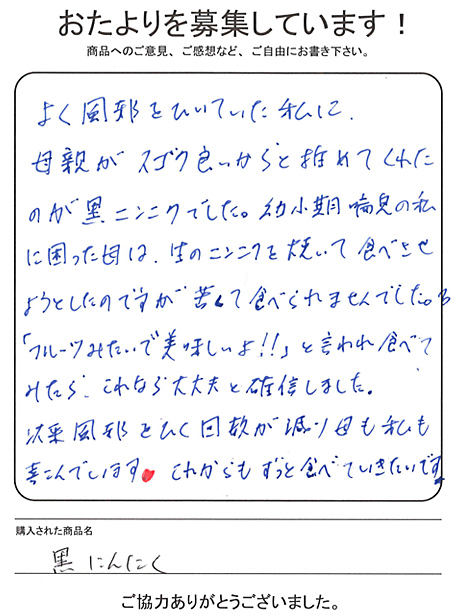 おたよりを募集しています！
商品へのご意見、ご感想など、ご自由にお書き下さい。
よく風邪をひいていた私に、
母親がスゴク良いからと推めてくれた
のが黒ニンニクでした。幼小期喘息の私
に困った母は、生のニンニクを焼いて食べさせ
ようとしたのですが苦くて食べられませんでした。
「フルーツみたいで美味しいよ!!」と言われ食べて
みたら、これなら大丈夫と確信しました。
次第風邪をひく回数が減り母も私も
喜こんでいます これからもずっと食べていきたいです。
購入された商品名
黒にんにく
ご協力ありがとうございました。